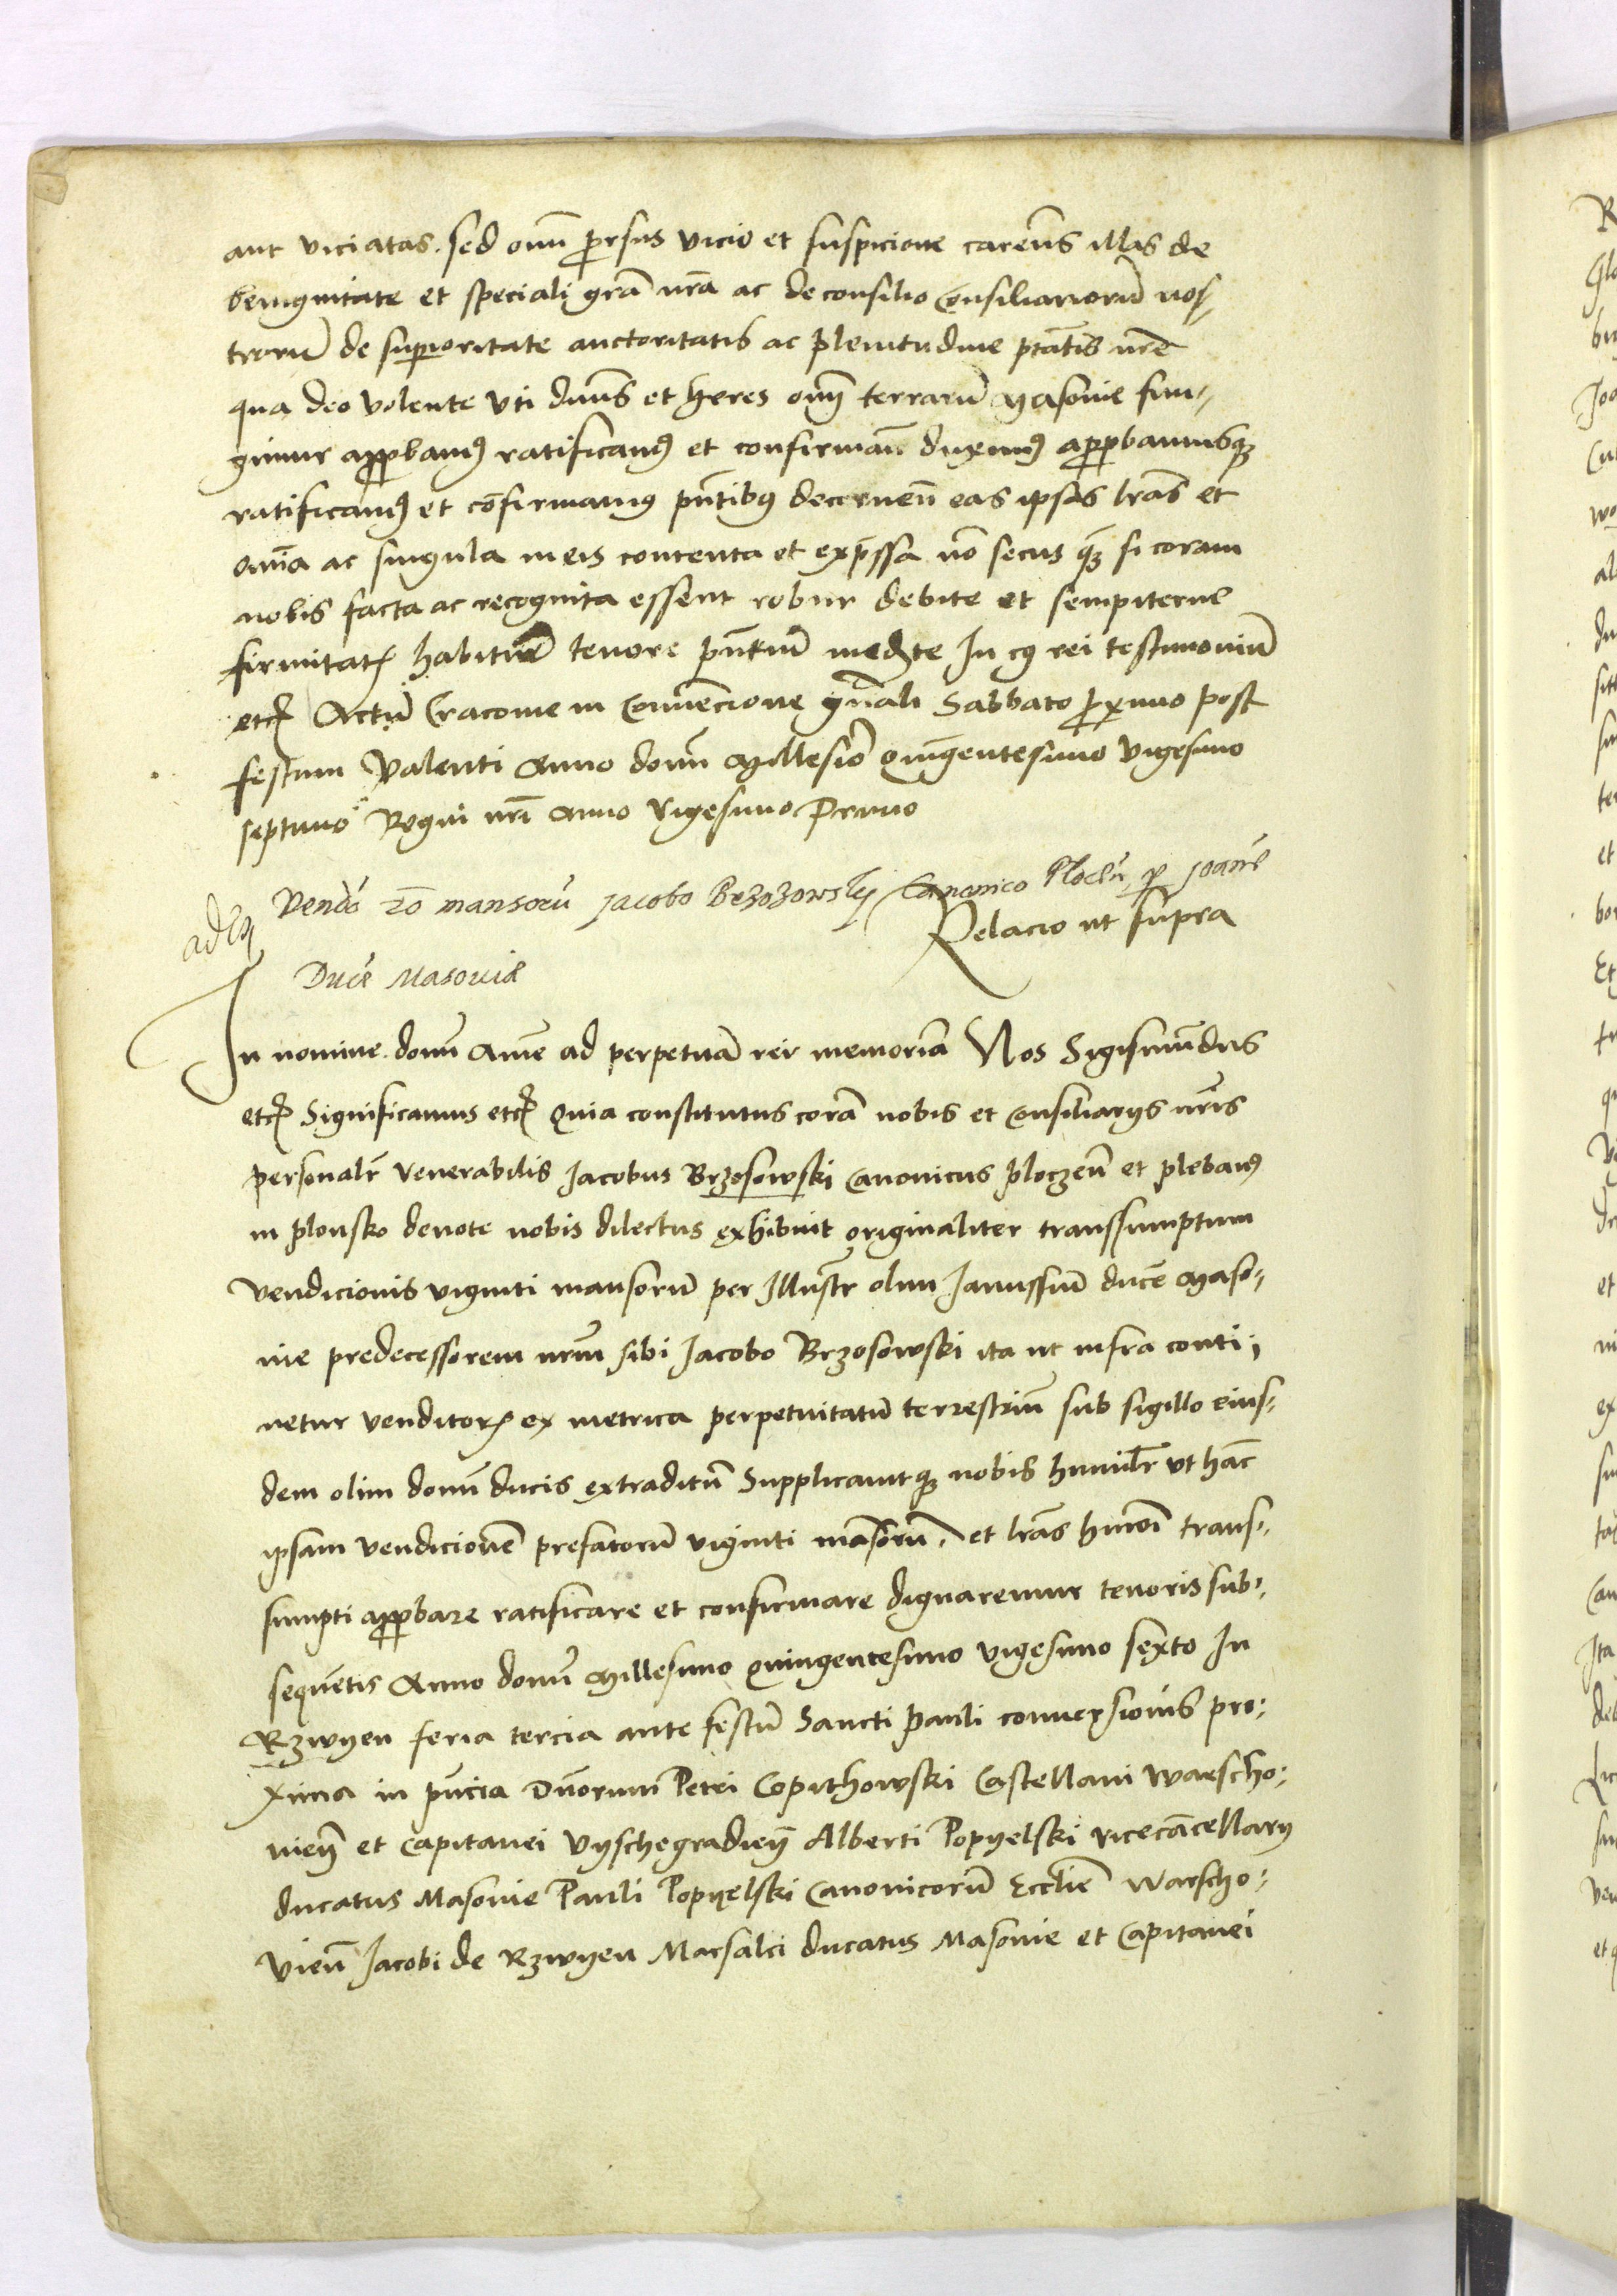 aut viciatas. sed om̄i prorsus vicio et suspicione careñs illas de
benignitate et speciali grã nrã ac de consilio Consiliariorũ nos-
trorũ de superioritate auctoritatis ac plenitudine ptãtis nrẽ
qua deo volente uti duñs et heres om̄ terrarũ Masovie fun-
gimur approband ratificand et confirmañ duximꝯ approbamusqꝫ
ratificamꝯ et cõfirmamus pñtibꝯ decerneñ eas ipsas lrãs et
om̄ia ac singula in eis contenta et expressa nõ secus qꝫ si coram
nobis facta ac recognita essent robur debite et sempiterne
firmitatꝭ habiturã tenore pñtiũ medẽte In cꝯ rei testimoniũ
etcꝭ Actũ Cracovie in Convẽcione gñali Sabbato proximo post
festum Valenti Anno dom̃ Millesiõ quĩgentesimo vigesimo
septimo Regni nrĩ anno vigesimo Primo
Vendõ 20 mansorũ Jacobo Brzozowsky Canonico Plocẽn per Joanẽ
Relacio ut supra
Ducẽ Masoviæ
In nomine dom̃ amẽ ad perpetuã rei memoriã Nos Sigismũdus
etcꝭ Significamus etcꝭ quia constitutus corã nobis et Consiliarys nrĩs
personalr̃ venerabilis Jacobus Brzosowski Canonicus plocẓeñ et plebanꝯ
in plonsko devote nobis dilectus exhibuit originaliter transsumptum
vendicionis viginti mansorũ per Illustr̃ olim Janussiũ ducẽ Maso-
vie predecessorem nrm̃ sibi Jacobo Brzosowski ita ut infra conti-
netur venditorꝭ ex metrica perpetuitatũ terrestriũ sub sigillo eius-
dem olim dom̃ ducis extraditũ Supplicavitqꝫ nobis humilr̃ ut hãc
ipsam vendicionẽ prefatorũ viginti mãsorũ. et lrãs hmõi trans-
sumpti approbare ratificare et confirmare dignaremur tenoris sub-
sequẽtis Anno dom̃ Millesimo quingentesimo vigesimo sexto In
Rzwyen feria tercia ante festũ Sancti Pauli conversionis pro-
xima in pñcia Dñorum Petri Copithowski Castellani Warscho-
vieñ et Capitanei Vyschegradieñ Alberti Popyelski vicecãcellary
ducatus Masovie Pauli Popyelski Canonicorũ Eccliẽ Warscho-
vieñ Jacobi de Rzwyen Marsalci ducatus Masovie et Capitanei